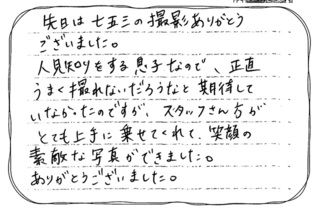 先日は七五三の撮影ありがとう
ございました。
人見知りをする息子なので、正直
うまく撮れないだろうなと期待して
いなかったのですが、スタッフさん方が
とても上手に乗せてくれて、笑顔の
素敵な写真ができました。
ありがとうございました。